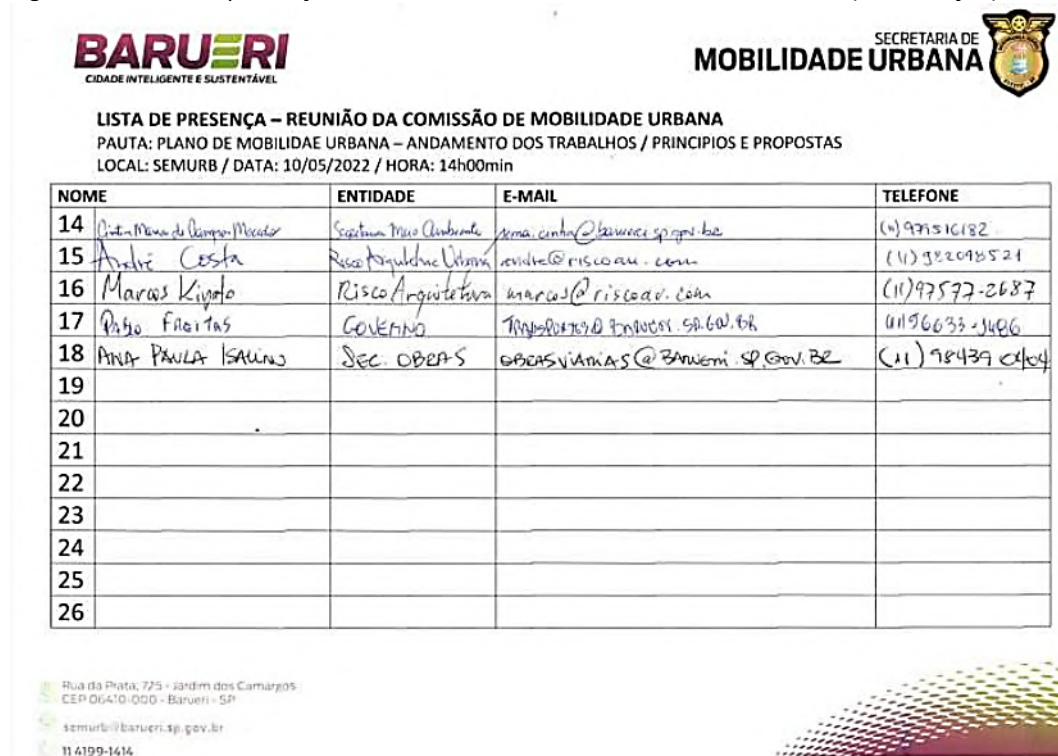 BARUERI
CIDADE INTELIGENTE E SUSTENTÁVEL
SECRETARIA DE
MOBILIDADE URBANA
LISTA DE PRESENÇA – REUNIÃO DA COMISSÃO DE MOBILIDADE URBANA
PAUTA: PLANO DE MOBILIDAE URBANA – ANDAMENTO DOS TRABALHOS / PRINCIPIOS E PROPOSTAS
LOCAL: SEMURB / DATA: 10/05/2022 / HORA: 14h00min
NOME ENTIDADE E-MAIL TELEFONE
14 Maria de Secretaria Meio Ambiente (11) 971516182
15 André Costa Risco Arquitetura Urbana andre@riscoau.com (11) 982098521
16 Marcos Risco Arquitetura marcos@riscoau.com (11) 97577-2687
17 FREITAS GOVERNO TRANSPORTES@BARUERI.SP.GOV.BR
18 ANA PAULA SEC. OBRAS OBRASVIARIAS@BARUERI.SP.GOV.BR (11) 98439 0404
19
20
21
22
23
24
25
26
Rua da Prata, 725 - Jardim dos Camargos
CEP 06410-000 - Barueri - SP
semurb@barueri.sp.gov.br
11 4199-1414